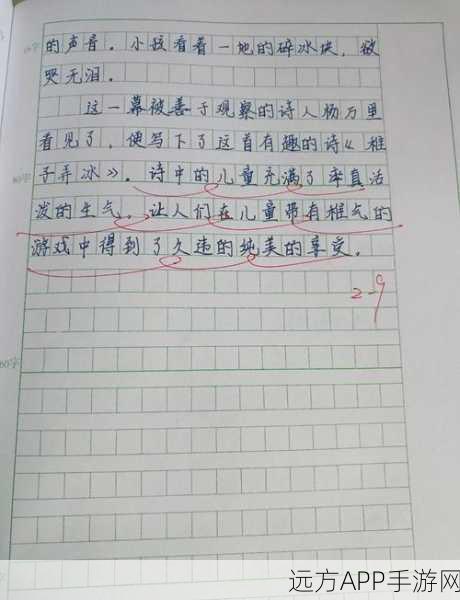 的声音。小孩看着一地的碎冰块，欲
哭无泪。
这一幕被善于观察的诗人杨万里
看见了，便写下了这首有趣的诗《稚
子弄冰》。诗中的儿童充满了率真活
泼的生气。让人们在儿童带有稚气的
游戏中得到了久违的纯美的享受。
2-9
远方APP手游网